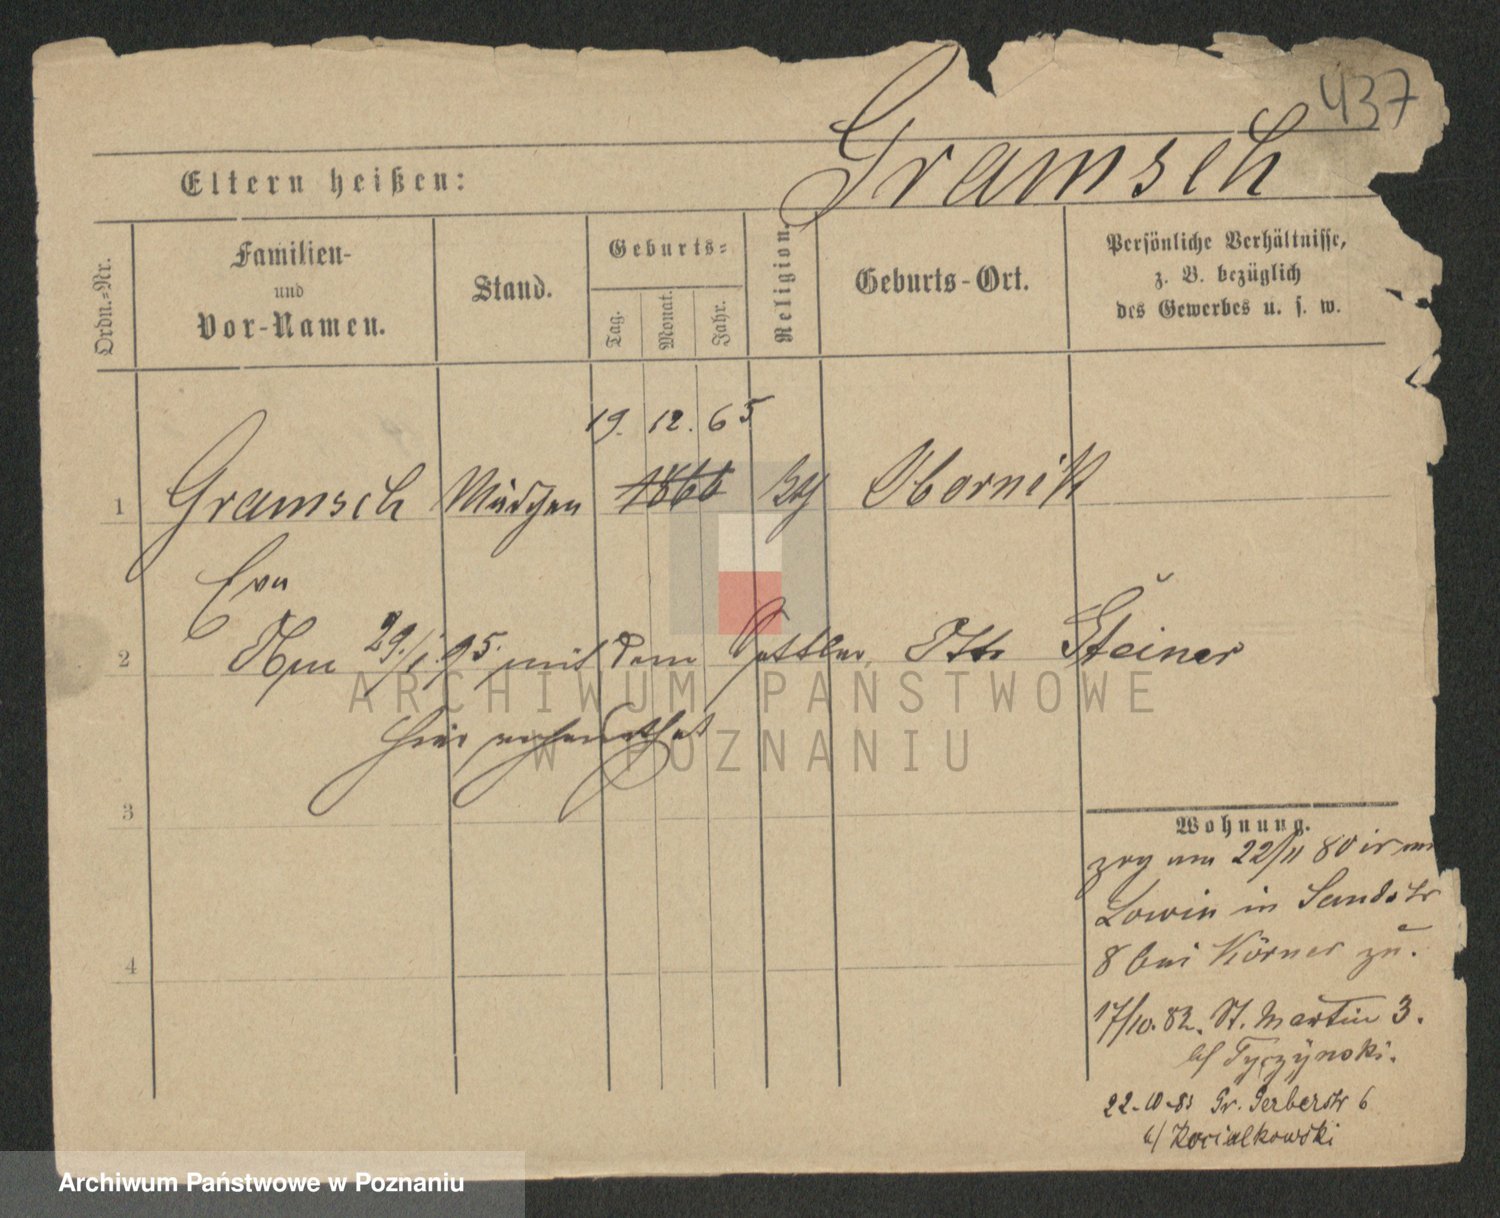 437
Gramsch
Eltern heißen:
Ordn.=Nr.
Familien-
und
Vor-Namen.
Stand.
Geburts=
Tag.
Monat.
Jahr.
Religion.
Geburts-Ort.
Persönliche Verhältnisse,
z. B. bezüglich
des Gewerbes u. s. w.
19. 12. 65
1 Gramsch Mädchen 1866 Obornik
Eva
2 Am 29./1. 95. mit dem Otto Steiner
ARCHIWUM PAŃSTWOWE
hier verheirathet
W POZNANIU
3
Wohnung.
zog am 22/11 80
in Sandstr
4
8 bei Körner zu.
17/10. 82. St. Martin 3.
b/ Tyczynski.
22-10-83 Gr. Gerberstr 6
b/ Kocialkowski
Archiwum Państwowe w Poznaniu